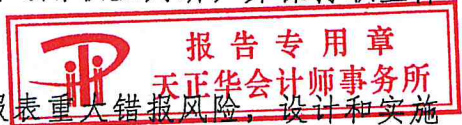 报告专用章
天正华会计师事务所
报表重大错报风险，设计和实施